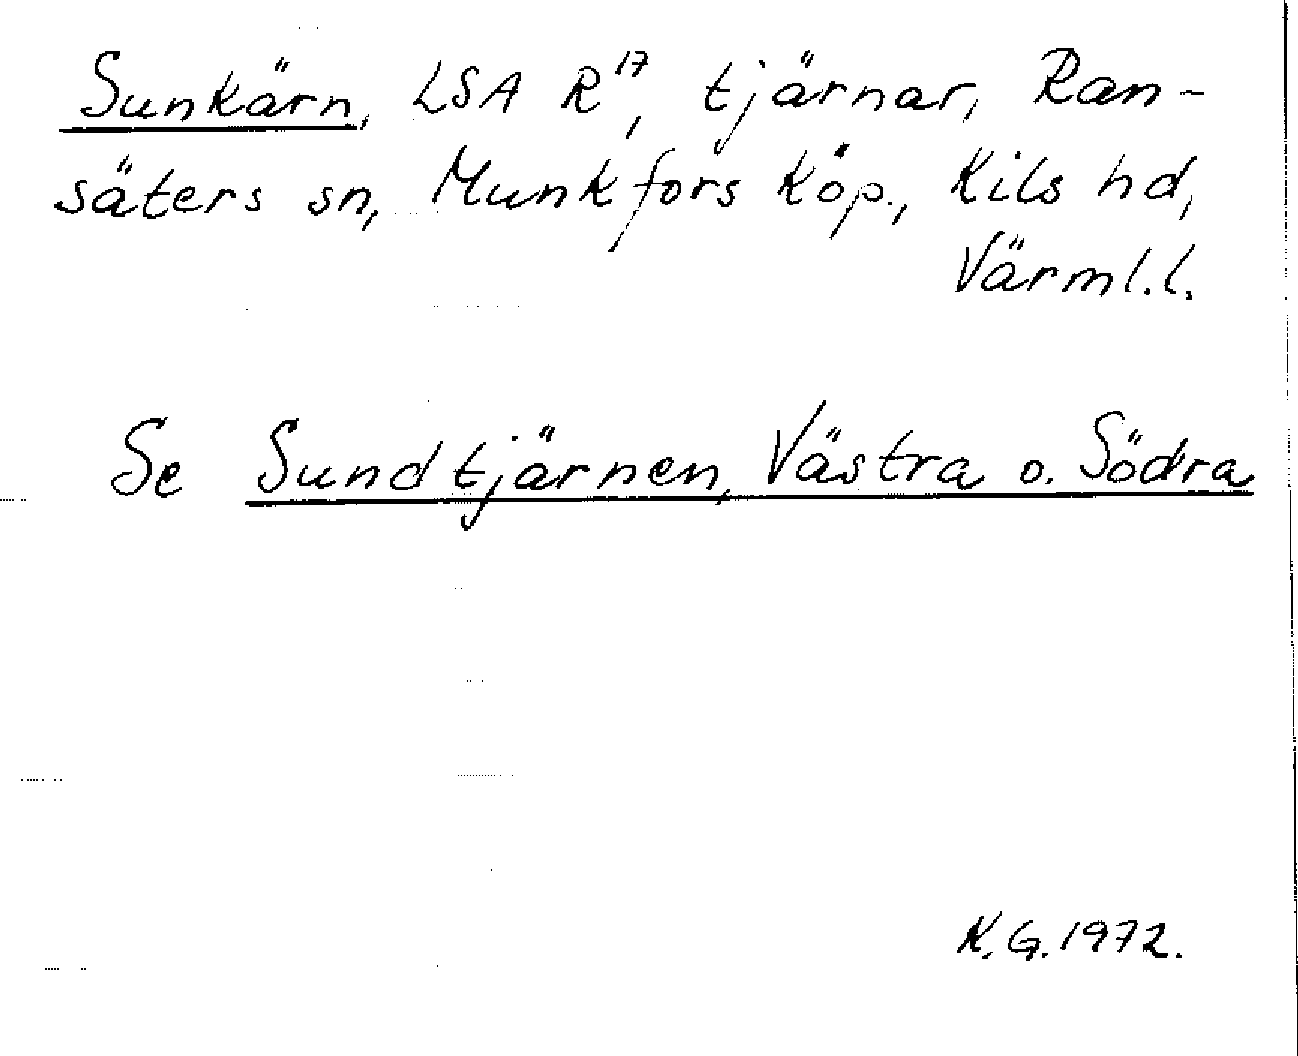 Sunkärn, LSA R¹⁷, tjärnar, Ran-
säters sn, Munkfors köp., Kils hd,
Värml.l.
Se Sundtjärnen, Västra o. Södra
K.G. 1972.